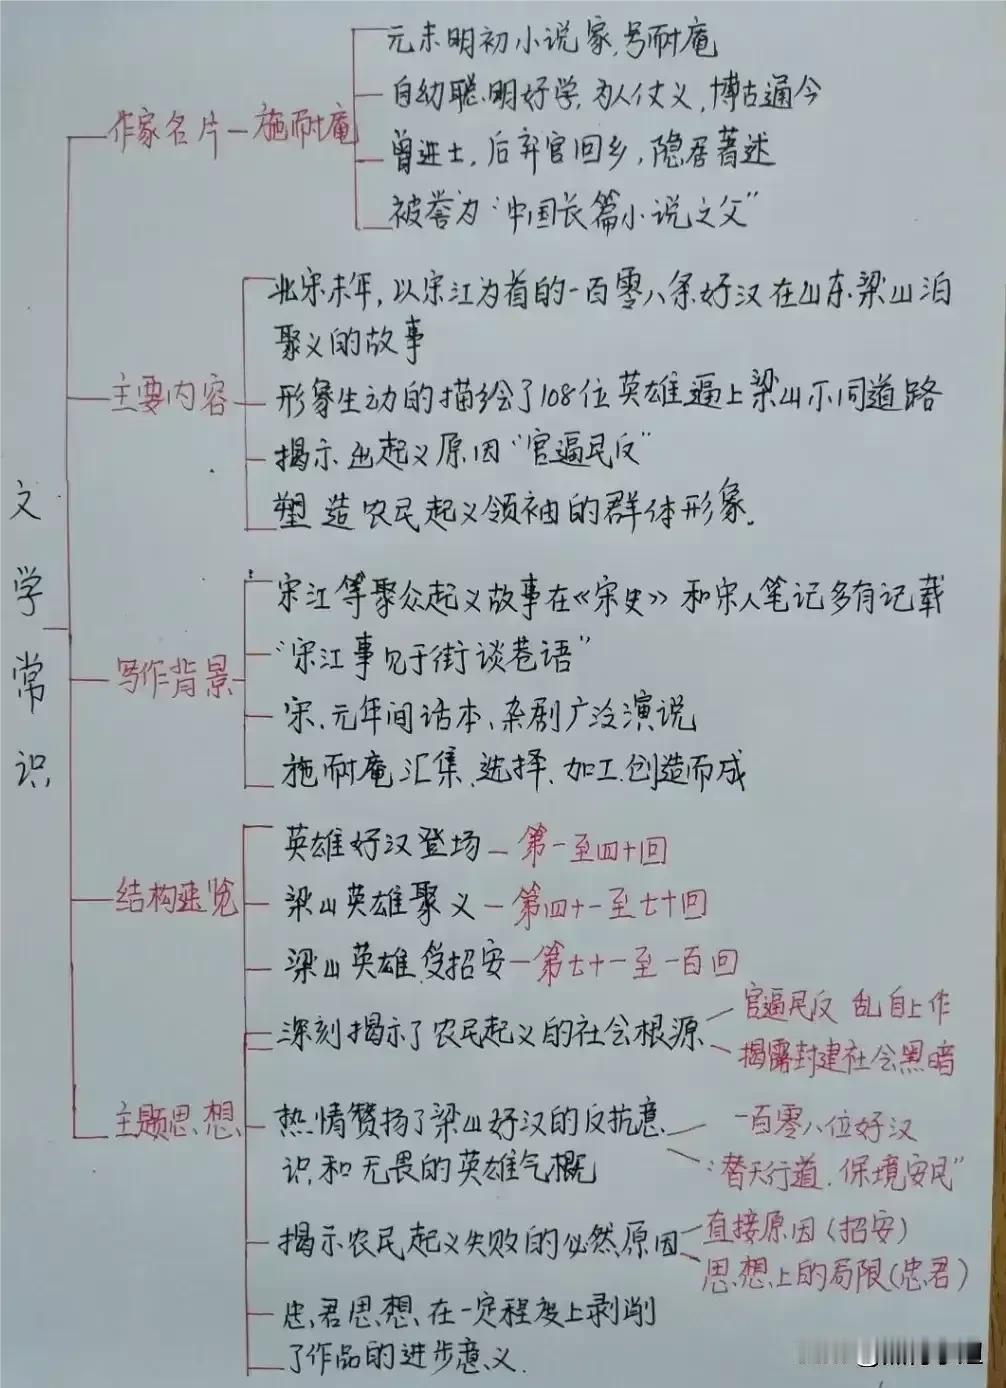 文学常识
作家名片
施耐庵
元末明初小说家,号耐庵
自幼聪明好学,为人仗义,博古通今
曾进士,后弃官回乡,隐居著述
被誉为“中国长篇小说之父”
主要内容
北宋末年,以宋江为首的一百零八条好汉在山东梁山泊
聚义的故事
形象生动的描绘了108位英雄逼上梁山不同道路
揭示出起义原因“官逼民反”
塑造农民起义领袖的群体形象.
写作背景
宋江等聚众起义故事在《宋史》和宋人笔记多有记载
“宋江事见于街谈巷语”
宋、元年间话本、杂剧广泛演说
施耐庵汇集、选择、加工、创造而成
结构速览
英雄好汉登场—第一至四十回
梁山英雄聚义—第四十一至七十回
梁山英雄受招安—第七十一至一百回
主题思想
深刻揭示了农民起义的社会根源
官逼民反 乱自上作
揭露封建社会黑暗
热情赞扬了梁山好汉的反抗意
识和无畏的英雄气概
一百零八位好汉
“替天行道、保境安民”
揭示农民起义失败的必然原因
直接原因(招安)
思想上的局限(忠君)
忠君思想在一定程度上剥削
了作品的进步意义.